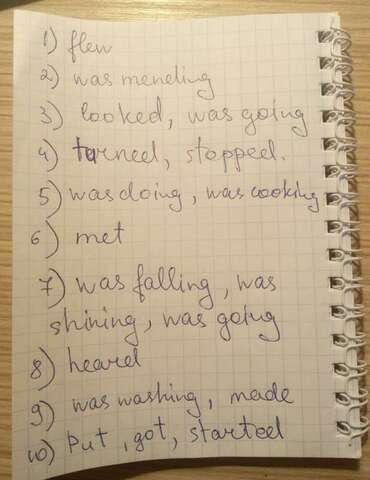 1) flew
2) was mending
3) looked, was going
4) turned, stopped.
5) was doing, was cooking
6) met
7) was falling, was
shining, was going
8) heard
9) was washing, made
10) put, got, started